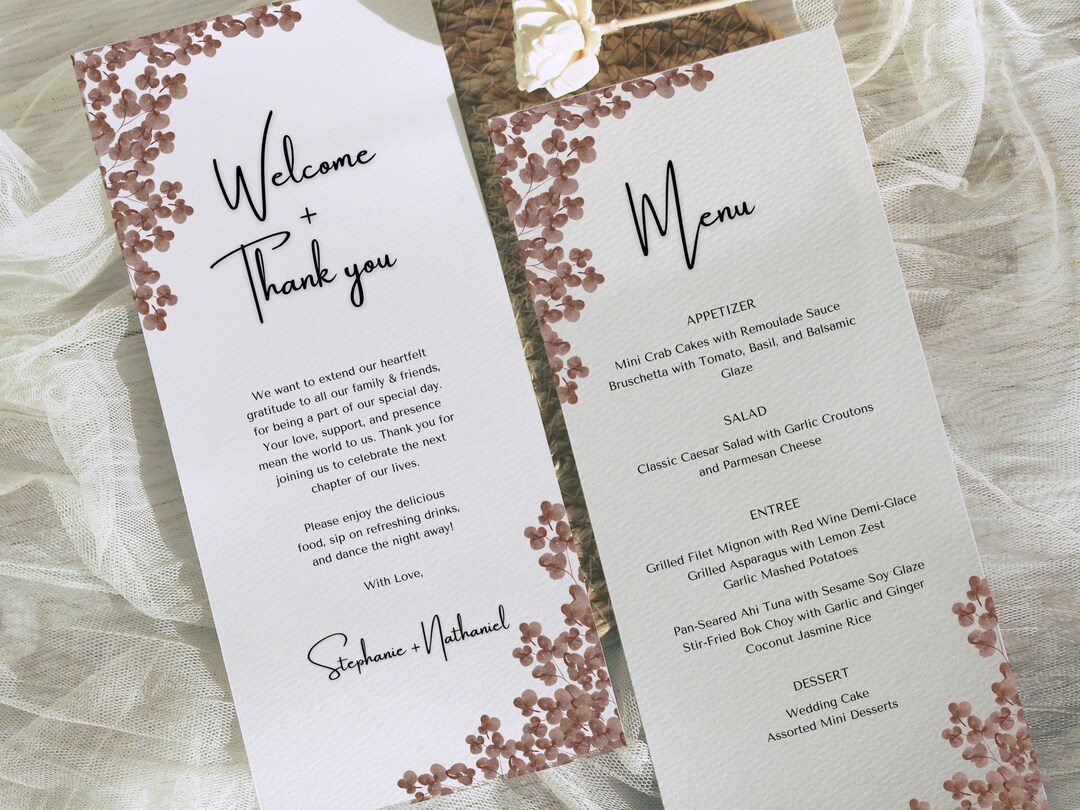 Welcome
+
Thank you
We want to extend our heartfelt
gratitude to all our family & friends,
for being a part of our special day.
Your love, support, and presence
mean the world to us. Thank you for
joining us to celebrate the next
chapter of our lives.
Please enjoy the delicious
food, sip on refreshing drinks,
and dance the night away!
With Love,
Stephanie + Nathaniel
Menu
APPETIZER
Mini Crab Cakes with Remoulade Sauce
Bruschetta with Tomato, Basil, and Balsamic
Glaze
SALAD
Classic Caesar Salad with Garlic Croutons
and Parmesan Cheese
ENTREE
Grilled Filet Mignon with Red Wine Demi-Glace
Grilled Asparagus with Lemon Zest
Garlic Mashed Potatoes
Pan-Seared Ahi Tuna with Sesame Soy Glaze
Stir-Fried Bok Choy with Garlic and Ginger
Coconut Jasmine Rice
DESSERT
Wedding Cake
Assorted Mini Desserts